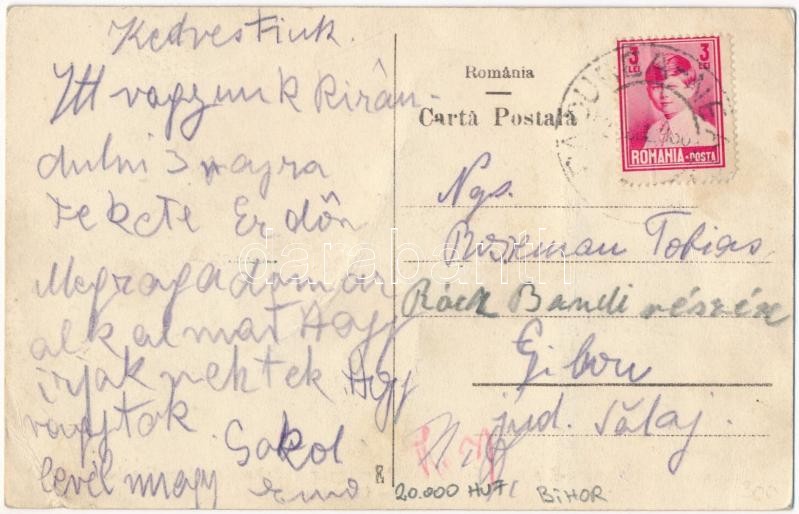 Kedves Fiuk.
Itt vagyunk Kirán-
dulni 3 napra
Fekete Erdőn
Megragadom az
alkalmat Hogy
irjak nektek Hogy
vagytok
Sokol
levél
Ernő
România
Carta Postală
3 LEI
3 LEI
ROMANIA·POSTA
Ngs.
Tobias
Róck Bandi részére
Gibou
jud. Sălaj.
20.000 HUF
BIHOR
darabanth